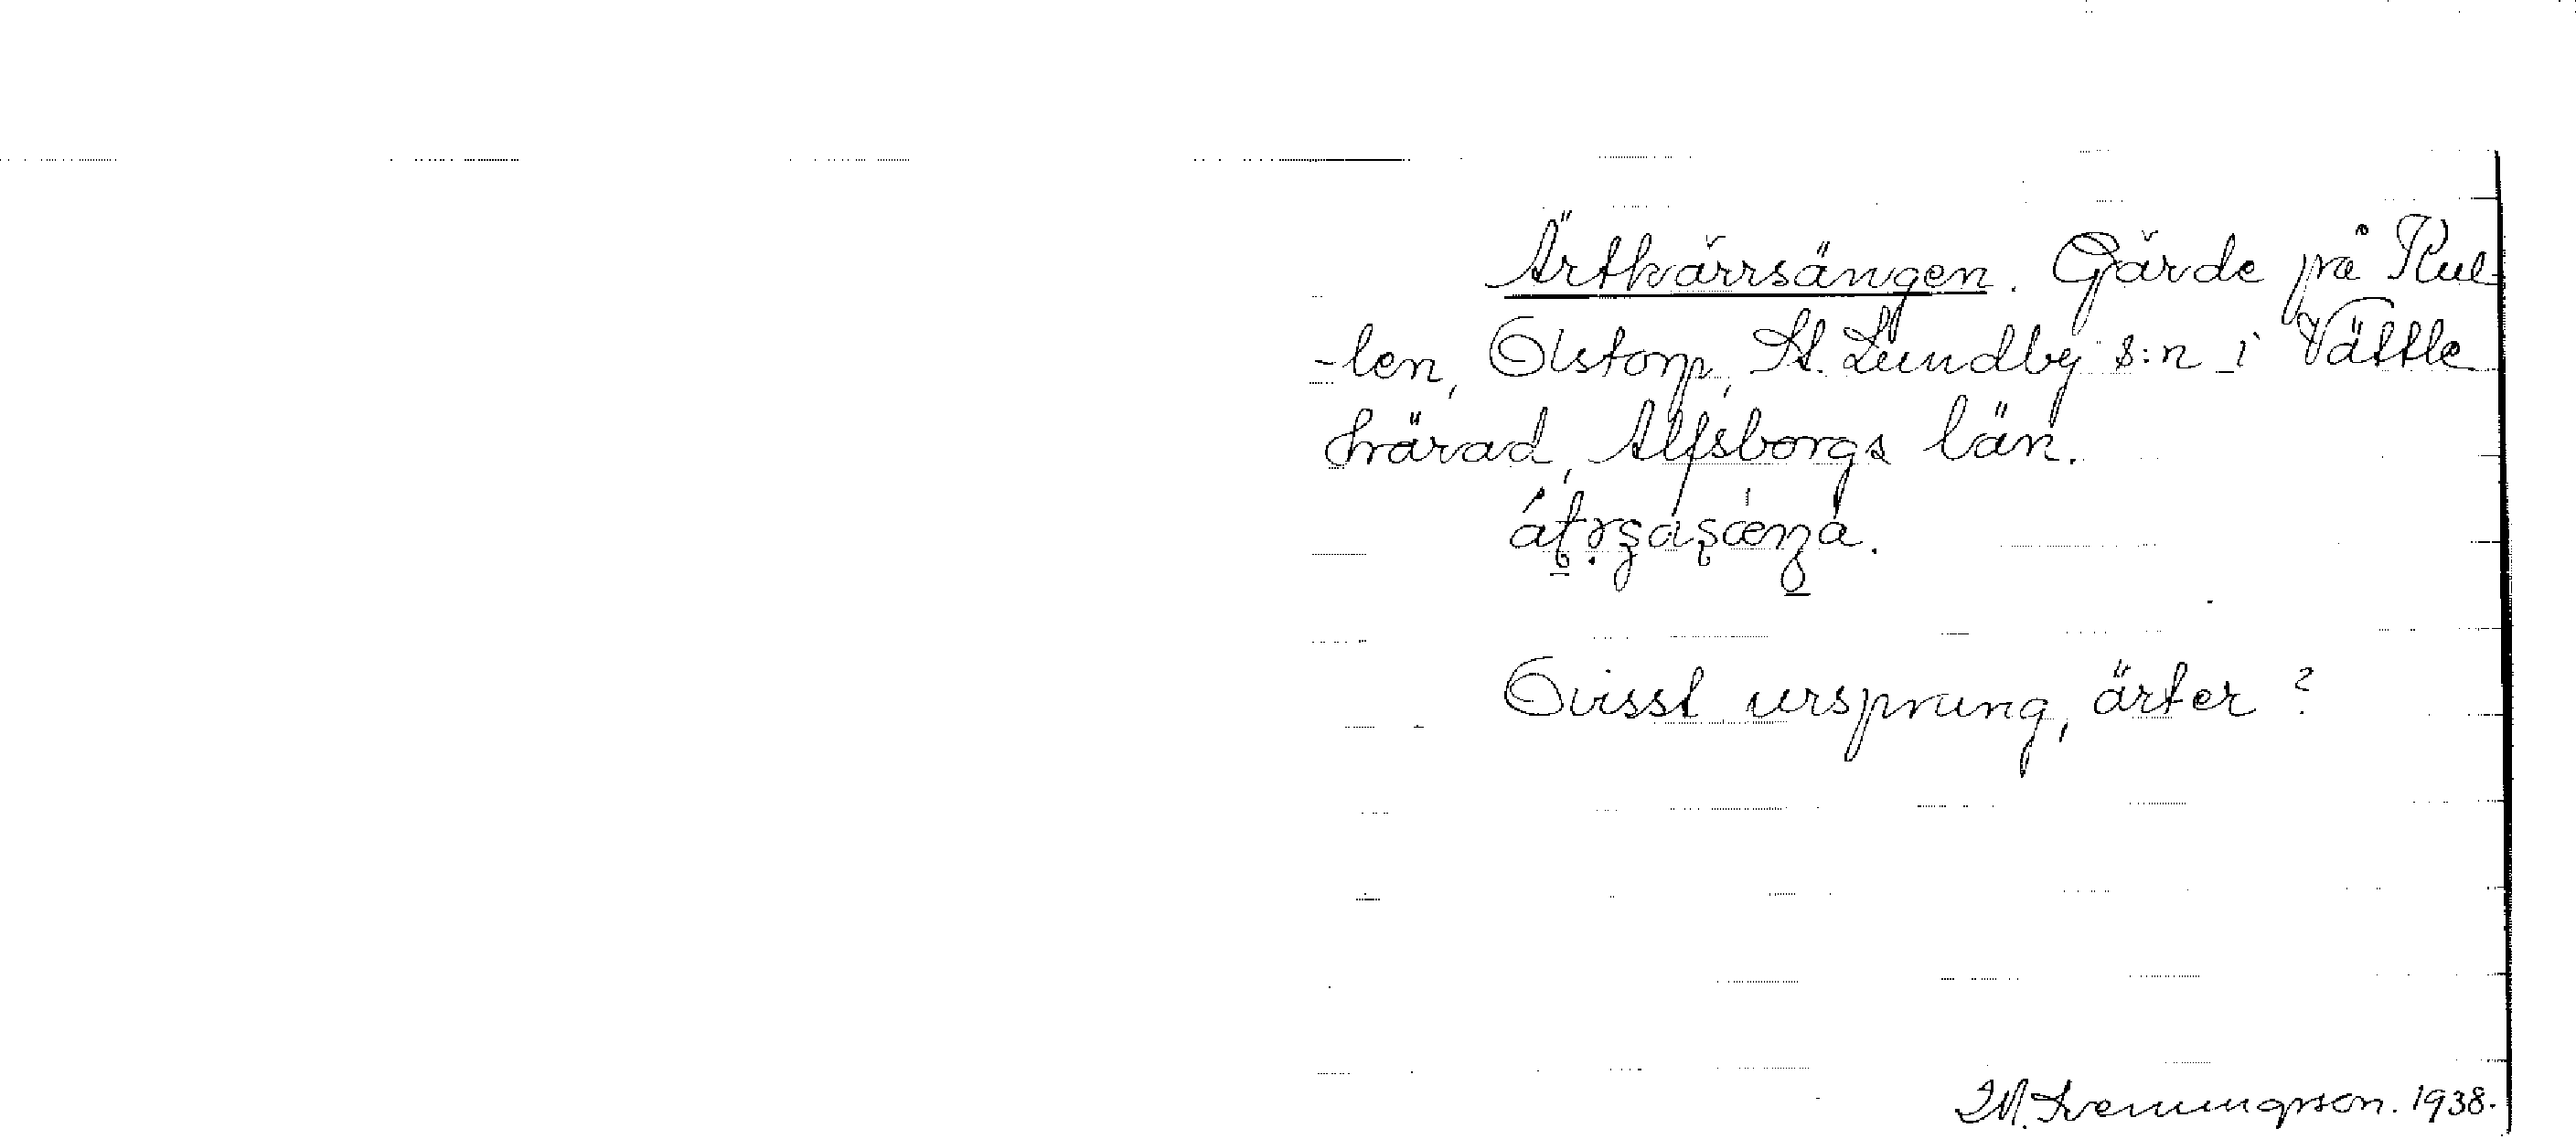 Ärtkärrsängen. Gärde på Kul-
-len, Olstorp, St. Lundby s:n i Vättle
härad, Älfsborgs län.
Ovisst ursprung, ärter?
1938.